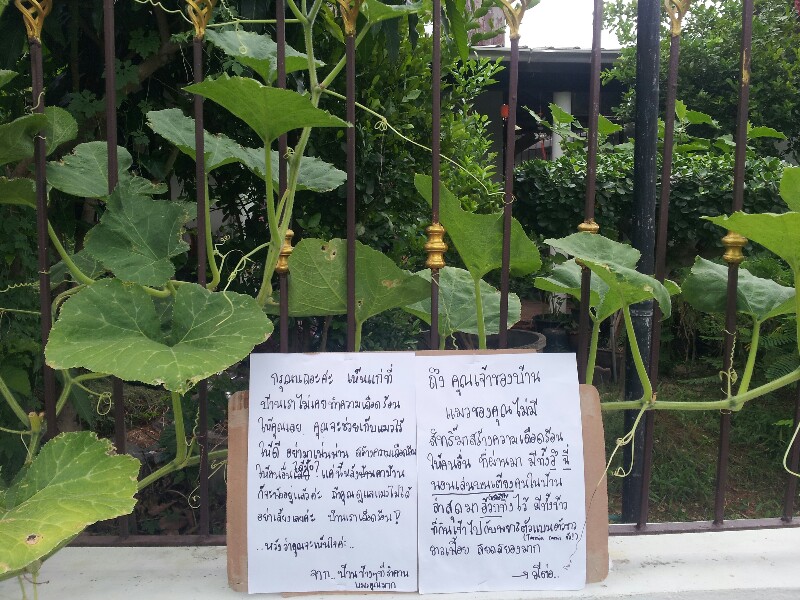 ถึง คุณเจ้าของบ้าน
แมวของคุณไม่มี
สิทธิ์มาสร้างความเดือดร้อน
ให้คนอื่น ที่ผ่านมา มีทั้งขี้ ฉี่
นอนเล่นบนเตียงคนในบ้าน
ล่าสุดมา อ้วกทิ้งไว้ มีทั้งข้าว
ที่กินเข้าไปกับพยาธิตัวแบนตัวยาว
ยาวเฟื้อย สยดสยองมาก
→ มีต่อ..
กรุณาเถอะค่ะ เห็นแก่ที่
บ้านเราไม่เคยทำความเดือดร้อน
ให้คุณเลย คุณจะช่วยเก็บแมวไว้
ให้ดี อย่ามาเพ่นพ่าน สร้างความเดือดร้อน
ให้คนอื่น ได้มั้ย? แค่นี้หลังบ้าน
ก็จะแย่อยู่แล้วค่ะ ถ้าคุณดูแลแมวไม่ได้
อย่าเลี้ยงเลยค่ะ บ้านเราเดือดร้อน!
..หวังว่าคุณจะเห็นใจค่ะ..
จาก.. บ้านข้างๆที่รำคาญ
แมวคุณมาก